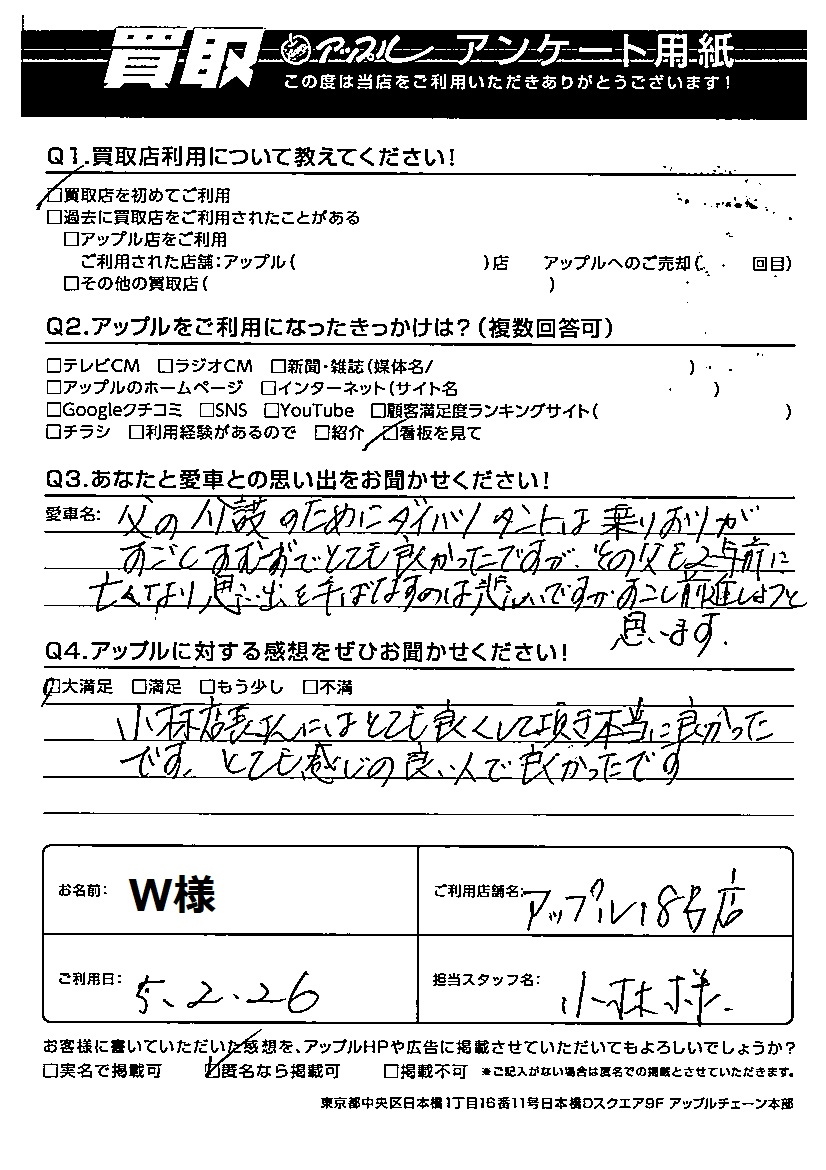 買取 アップル アンケート用紙
この度は当店をご利用いただきありがとうございます!
Q1.買取店利用について教えてください!
□買取店を初めてご利用
□過去に買取店をご利用されたことがある
□アップル店をご利用
ご利用された店舗:アップル( )店 アップルへのご売却( 回目)
□その他の買取店( )
Q2.アップルをご利用になったきっかけは?(複数回答可)
□テレビCM □ラジオCM □新聞・雑誌(媒体名/ )
□アップルのホームページ □インターネット(サイト名 )
□Googleクチコミ □SNS □YouTube □顧客満足度ランキングサイト( )
□チラシ □利用経験があるので □紹介 □看板を見て
Q3.あなたと愛車との思い出をお聞かせください!
愛車名: 父の介護のためにダイハツ タントは乗りおりが
すごくすむずでとても良かったですが、その父も2年前に
亡くなり思い出を手ばなすのは悲しいですがすこし前進しようと
思います.
Q4.アップルに対する感想をぜひお聞かせください!
□大満足 □満足 □もう少し □不満
小林店長さんにはとても良くして頂き本当に良かった
です、とても感じの良い人で良かったです
お名前: W様 ご利用店舗名: アップル18号店
ご利用日: 5.2.26 担当スタッフ名: 小林様.
お客様に書いていただいた感想を、アップルHPや広告に掲載させていただいてもよろしいでしょうか?
□実名で掲載可 □匿名なら掲載可 □掲載不可 ※ご記入がない場合は匿名での掲載とさせていただきます。
東京都中央区日本橋1丁目16番11号日本橋Dスクエア9F アップルチェーン本部